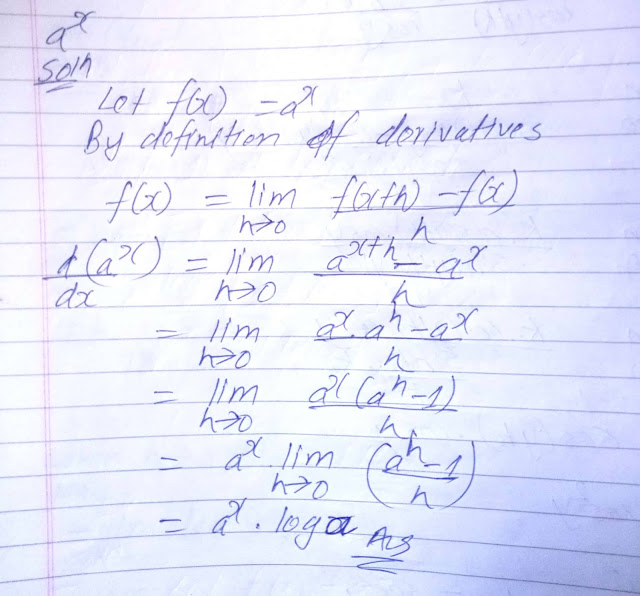 a^x
Soln
Let f(x) = a^x
By definition of derivatives
f(x) = lim h→0 f(x+h) - f(x) / h
d/dx (a^x) = lim h→0 a^(x+h) - a^x / h
= lim h→0 a^x . a^h - a^x / h
= lim h→0 a^x (a^h - 1) / h
= a^x . lim h→0 (a^h - 1 / h)
= a^x . log a Ans